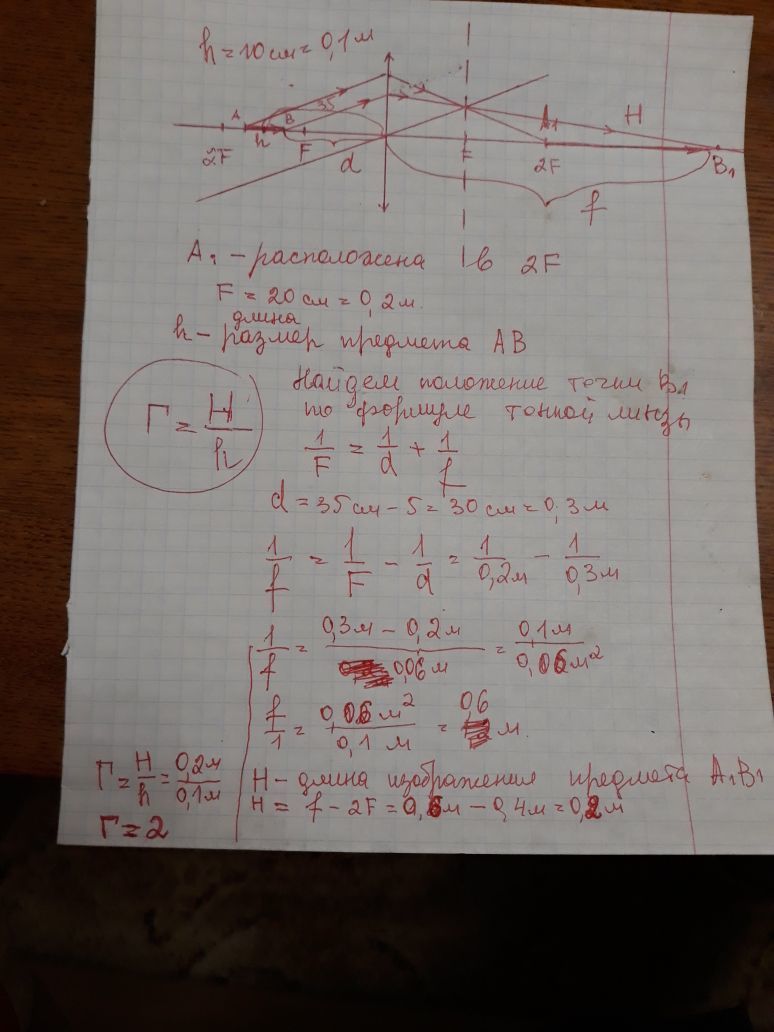 h = 10 см = 0,1 м
A B 35 A1 H
2F h F d F 2F B1
f
A1 – расположена в 2F
F = 20 см = 0,2 м.
длина
h – размер предмета AB
Найдем положение точки B1
по формуле тонкой линзы
Г = H/h
1/F = 1/d + 1/f
d = 35 см – 5 = 30 см = 0,3 м
1/f = 1/F – 1/d = 1/0,2м – 1/0,3м
1/f = 0,3м – 0,2м / 0,06 м = 0,1м / 0,06м²
f/1 = 0,06 м² / 0,1 м = 0,6 м.
Г = H/h = 0,2м/0,1м
H – длина изображения предмета A1B1
H = f – 2F = 0,6м – 0,4м = 0,2м
Г = 2